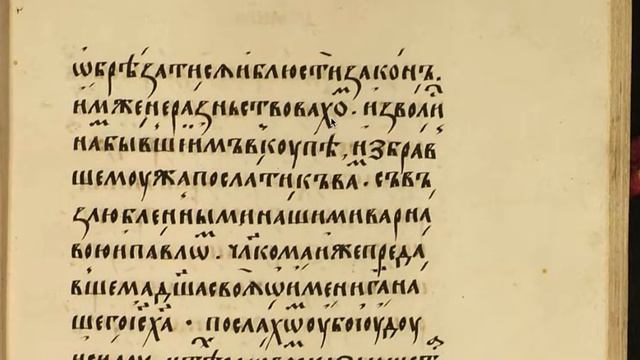 ѡбрѣзатисѧиблюстизаконъ.
имженеразньствовахоⷨ. изволи
наⷨбывшиимъвкоупѣ, избрав
шемоужапослатикъваⷨ. съвъ
злюбленныминашимиварна
воюипавлѡⷨ. чл҃комаижепреда
вшемадш҃асвоѧѡименигана
шегоіс҃х҃а · послахѡⷨоубоіоудоу